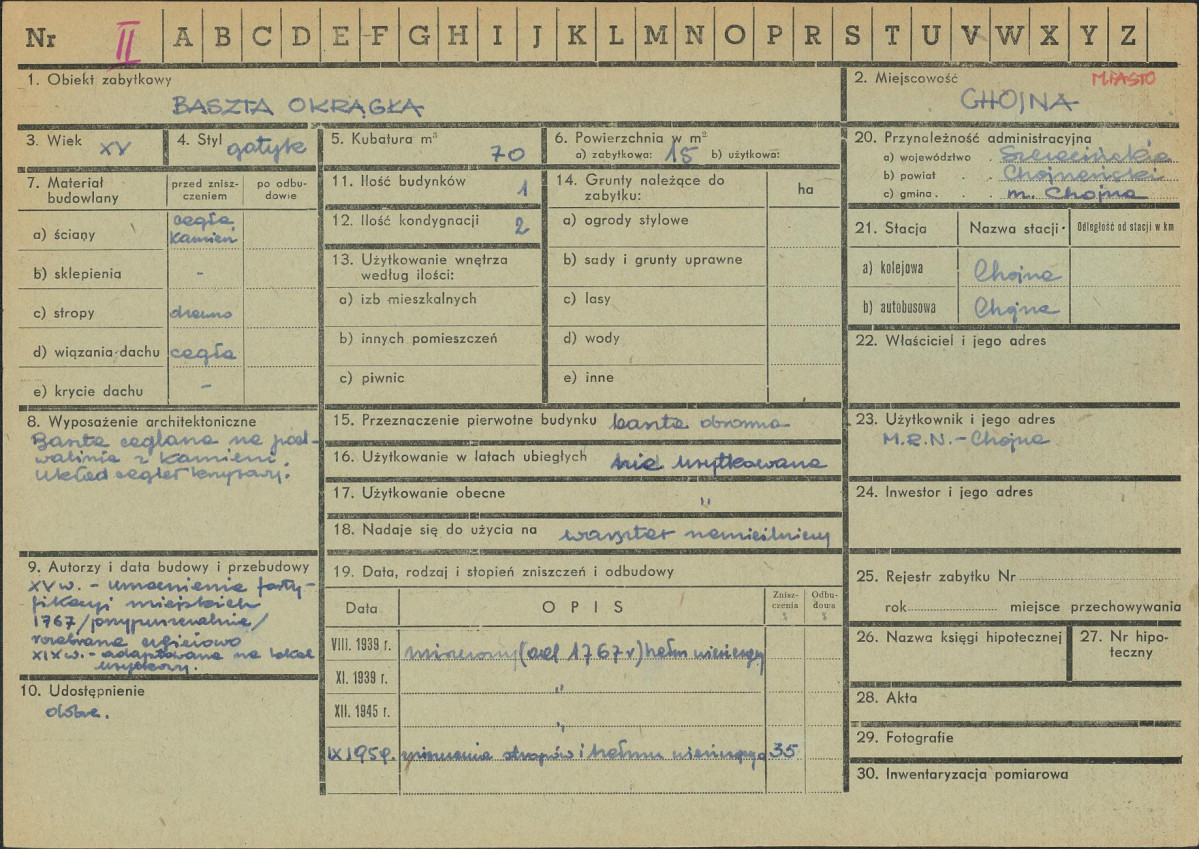 Nr II A B C D E F G H I J K L M N O P R S T U V W X Y Z
1. Obiekt zabytkowy
BASZTA OKRĄGŁA
2. Miejscowość MIASTO
CHOJNA
3. Wiek XV
4. Styl gotyk
5. Kubatura m³ 70
6. Powierzchnia w m²
a) zabytkowa: 15 b) użytkowa:
7. Materiał budowlany
przed zniszczeniem
po odbudowie
a) ściany cegła kamień
b) sklepienia -
c) stropy drewno
d) wiązania dachu cegła
e) krycie dachu -
8. Wyposażenie architektoniczne
Baszta ceglana na pod-
walinie z kamieni
układ cegieł krzyżowy.
9. Autorzy i data budowy i przebudowy
XV w. - umocnienie forty-
fikacji miejskich
1767 /przypuszczalnie/
rozebrana częściowo
XIX w. - adaptowana na lokal
użytkowy.
10. Udostępnienie
dobre.
11. Ilość budynków 1
12. Ilość kondygnacji 2
13. Użytkowanie wnętrza
według ilości:
a) izb mieszkalnych
b) innych pomieszczeń
c) piwnic
14. Grunty należące do
zabytku:
ha
a) ogrody stylowe
b) sady i grunty uprawne
c) lasy
d) wody
e) inne
15. Przeznaczenie pierwotne budynku baszta obronna
16. Użytkowanie w latach ubiegłych nie użytkowana
17. Użytkowanie obecne "
18. Nadaje się do użycia na warsztat rzemieślniczy
19. Data, rodzaj i stopień zniszczeń i odbudowy
Data OPIS Zniszczenia % Odbudowa %
VIII. 1939 r. zniszczony (od 1767 r) hełm wieńczący
XI. 1939 r. "
XII. 1945 r. "
IX 1959. zniszczenia stropów i hełmu wieńczącego 35
20. Przynależność administracyjna
a) województwo Szczecińskie
b) powiat Chojneński
c) gmina m. Chojna
21. Stacja Nazwa stacji Odległość od stacji w km
a) kolejowa Chojna
b) autobusowa Chojna
22. Właściciel i jego adres
23. Użytkownik i jego adres
M.R.N. - Chojna
24. Inwestor i jego adres
25. Rejestr zabytku Nr
rok miejsce przechowywania
26. Nazwa księgi hipotecznej
27. Nr hipo-
teczny
28. Akta
29. Fotografie
30. Inwentaryzacja pomiarowa